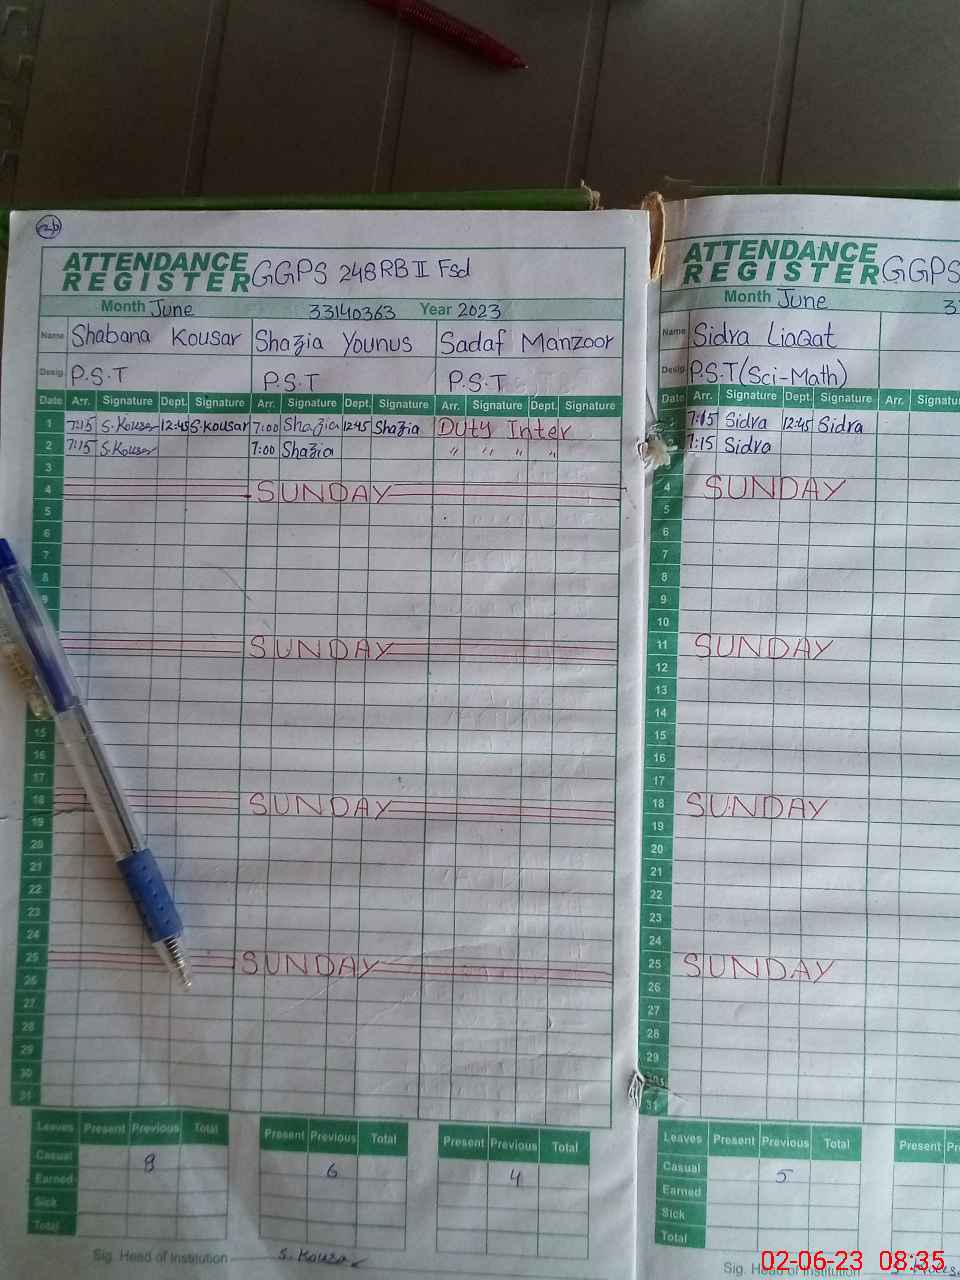 ATTENDANCE
REGISTER GGPS 248 RB II Fsd
Month June 33140363 Year 2023
Name Shabana Kousar Shazia Younus Sadaf Manzoor
Desig. P.S.T P.S.T P.S.T
Date Arr. Signature Dept. Signature Arr. Signature Dept. Signature Arr. Signature Dept. Signature
1 7:15 S.Kousar 12:45 S.kousar 7:00 Shazia 12:45 Shazia Duty Inter
2 7:15 S.Kousar 7:00 Shazia " " " "
3
4 SUNDAY
5
6
7
8
9
SUNDAY
15
16
17
18 SUNDAY
19
20
21
22
23
24
25 SUNDAY
26
27
28
29
30
31
Leaves Present Previous Total Present Previous Total Present Previous Total
Casual 8 6 4
Earned
Sick
Total
Sig. Head of Institution S. Kousar
ATTENDANCE
REGISTER GGPS
Month June
Name Sidra Liaqat
Desig. P.S.T (Sci-Math)
Date Arr. Signature Dept. Signature Arr.
7:15 Sidra 12:45 Sidra
7:15 Sidra
4 SUNDAY
5
6
7
8
9
10
11 SUNDAY
12
13
14
15
16
17
18 SUNDAY
19
20
21
22
23
24
25 SUNDAY
26
27
28
29
31
Leaves Present Previous Total Present
Casual 5
Earned
Sick
Total
Sig. Head of Institution
02-06-23 08:35